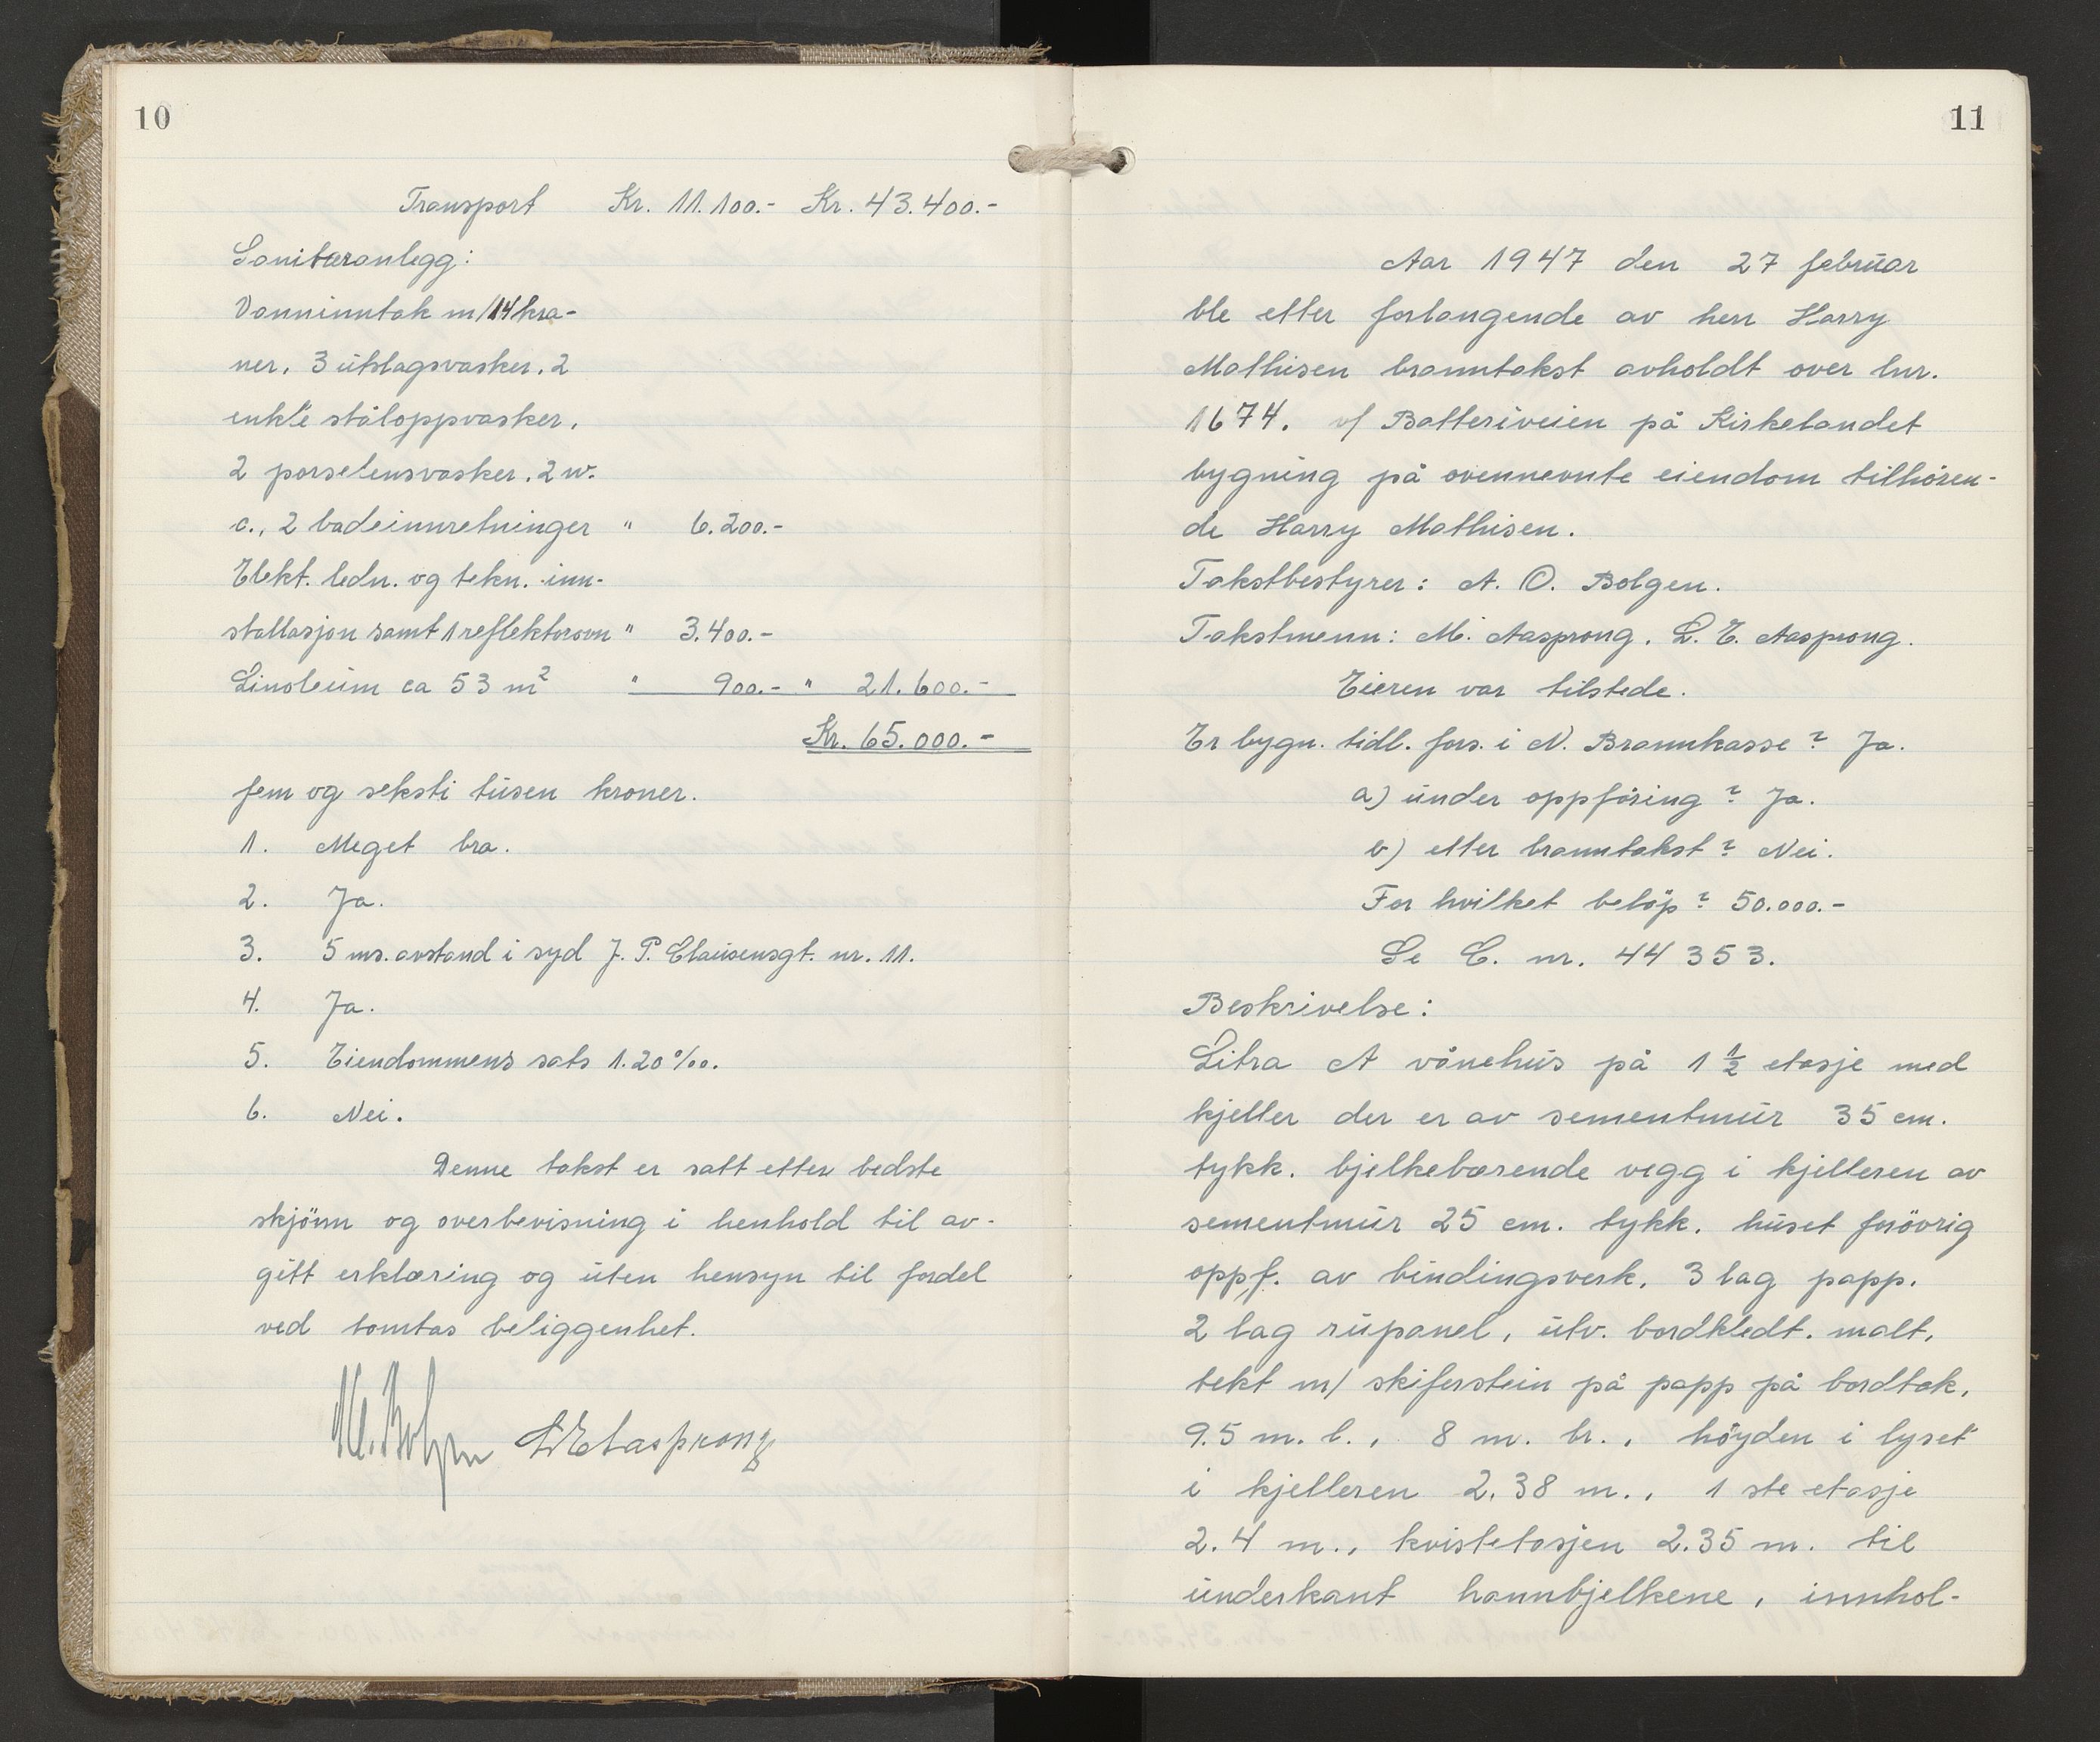 10
Transport Kr. 11.100.- Kr. 43.400.-
Sanitæranlegg:
Vanninntak m/14 kra-
ner, 3 utslagsvasker, 2
enkle ståloppvasker,
2 porselensvasker, 2 w.
c., 2 badeinnretninger " 6.200.-
Elekt. ledn. og tekn. inn-
stallasjon samt 1 reflektorovn " 3.400.-
Linoleum ca 53 m² " 900.- " 21.600.-
Kr. 65.000.-
fem og seksti tusen kroner.
1. Meget bra.
2. Ja.
3. 5 ms. avstand i syd J. P. Clausensgt. nr. 11.
4. Ja.
5. Eiendommens sats 1.20 ‰.
6. Nei.
Denne takst er satt etter bedste
skjönn og overbevisning i henhold til av-
gitt erklæring og uten hensyn til fordel
ved tomtas beliggenhet.
L E Aasprong
11
Aar 1947 den 27 februar
ble etter forlangende av herr Harry
Mathisen branntakst avholdt over lnr.
1674. v/ Batteriveien på Kirkelandet
bygning på ovennevnte eiendom tilhören-
de Harry Mathisen.
Takstbestyrer: A. O. Bolgen.
Takstmenn: M. Aasprong, L. E. Aasprong.
Eieren var tilstede.
Er bygn. tidl. fors. i N. Brannkasse? Ja.
a) under oppföring? Ja.
b) etter branntakst? Nei.
For hvilket belöp? 50.000.-
Se C. nr. 44353.
Beskrivelse:
Litra A vånehus på 1 1/2 etasje med
kjeller der er av sementmur 35 cm.
tykk. bjelkebærende vegg i kjelleren av
sementmur 25 cm. tykk, huset forövrig
oppf. av bindingsverk, 3 lag papp.
2 lag rupanel, utv. bordkledt. malt,
tekt m/ skiferstein på papp på bordtak,
9.5 m. l., 8 m. br., höyden i lyset
i kjelleren 2.38 m., 1 ste etasje
2.4 m., kvistetasjen 2.35 m. til
underkant hannbjelkene, innhol-